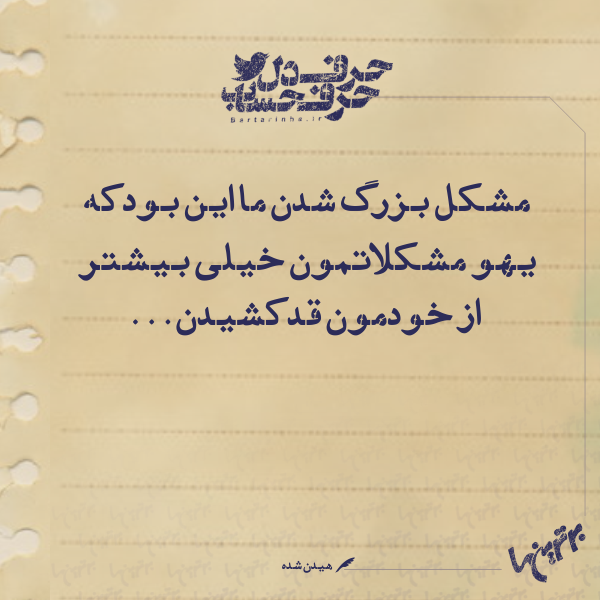 حرف دل
حرف حساب
Bartarinha.ir
مشکل بزرگ شدن ما این بود که
یهو مشکلاتمون خیلی بیشتر
از خودمون قد کشیدن...
هیدن شده
برترین‌ها